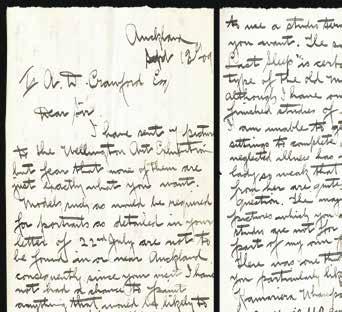 Auckland
Sept 12th 09
To A. W. Cranford Esq
Dear Sir
I have sent 4 pictures
to the Wellington Art Exhibition
but fear that none of them are
just exactly what you want.
Models such as would be required
for portraits as detailed in your
letter of 22nd July are not to
be found in or near Auckland
consequently since your visit I have
not had a chance to paint
anything that would be likely to
to use a studio
you want. The
Last Sleep" is
type of the old
although I have
finished studies of
I am unable to
sittings to complete
neglected illness has
lady so weak that
from her are quite
question. The
pictures which you
studio are not for
part of my
There was one
you particularly